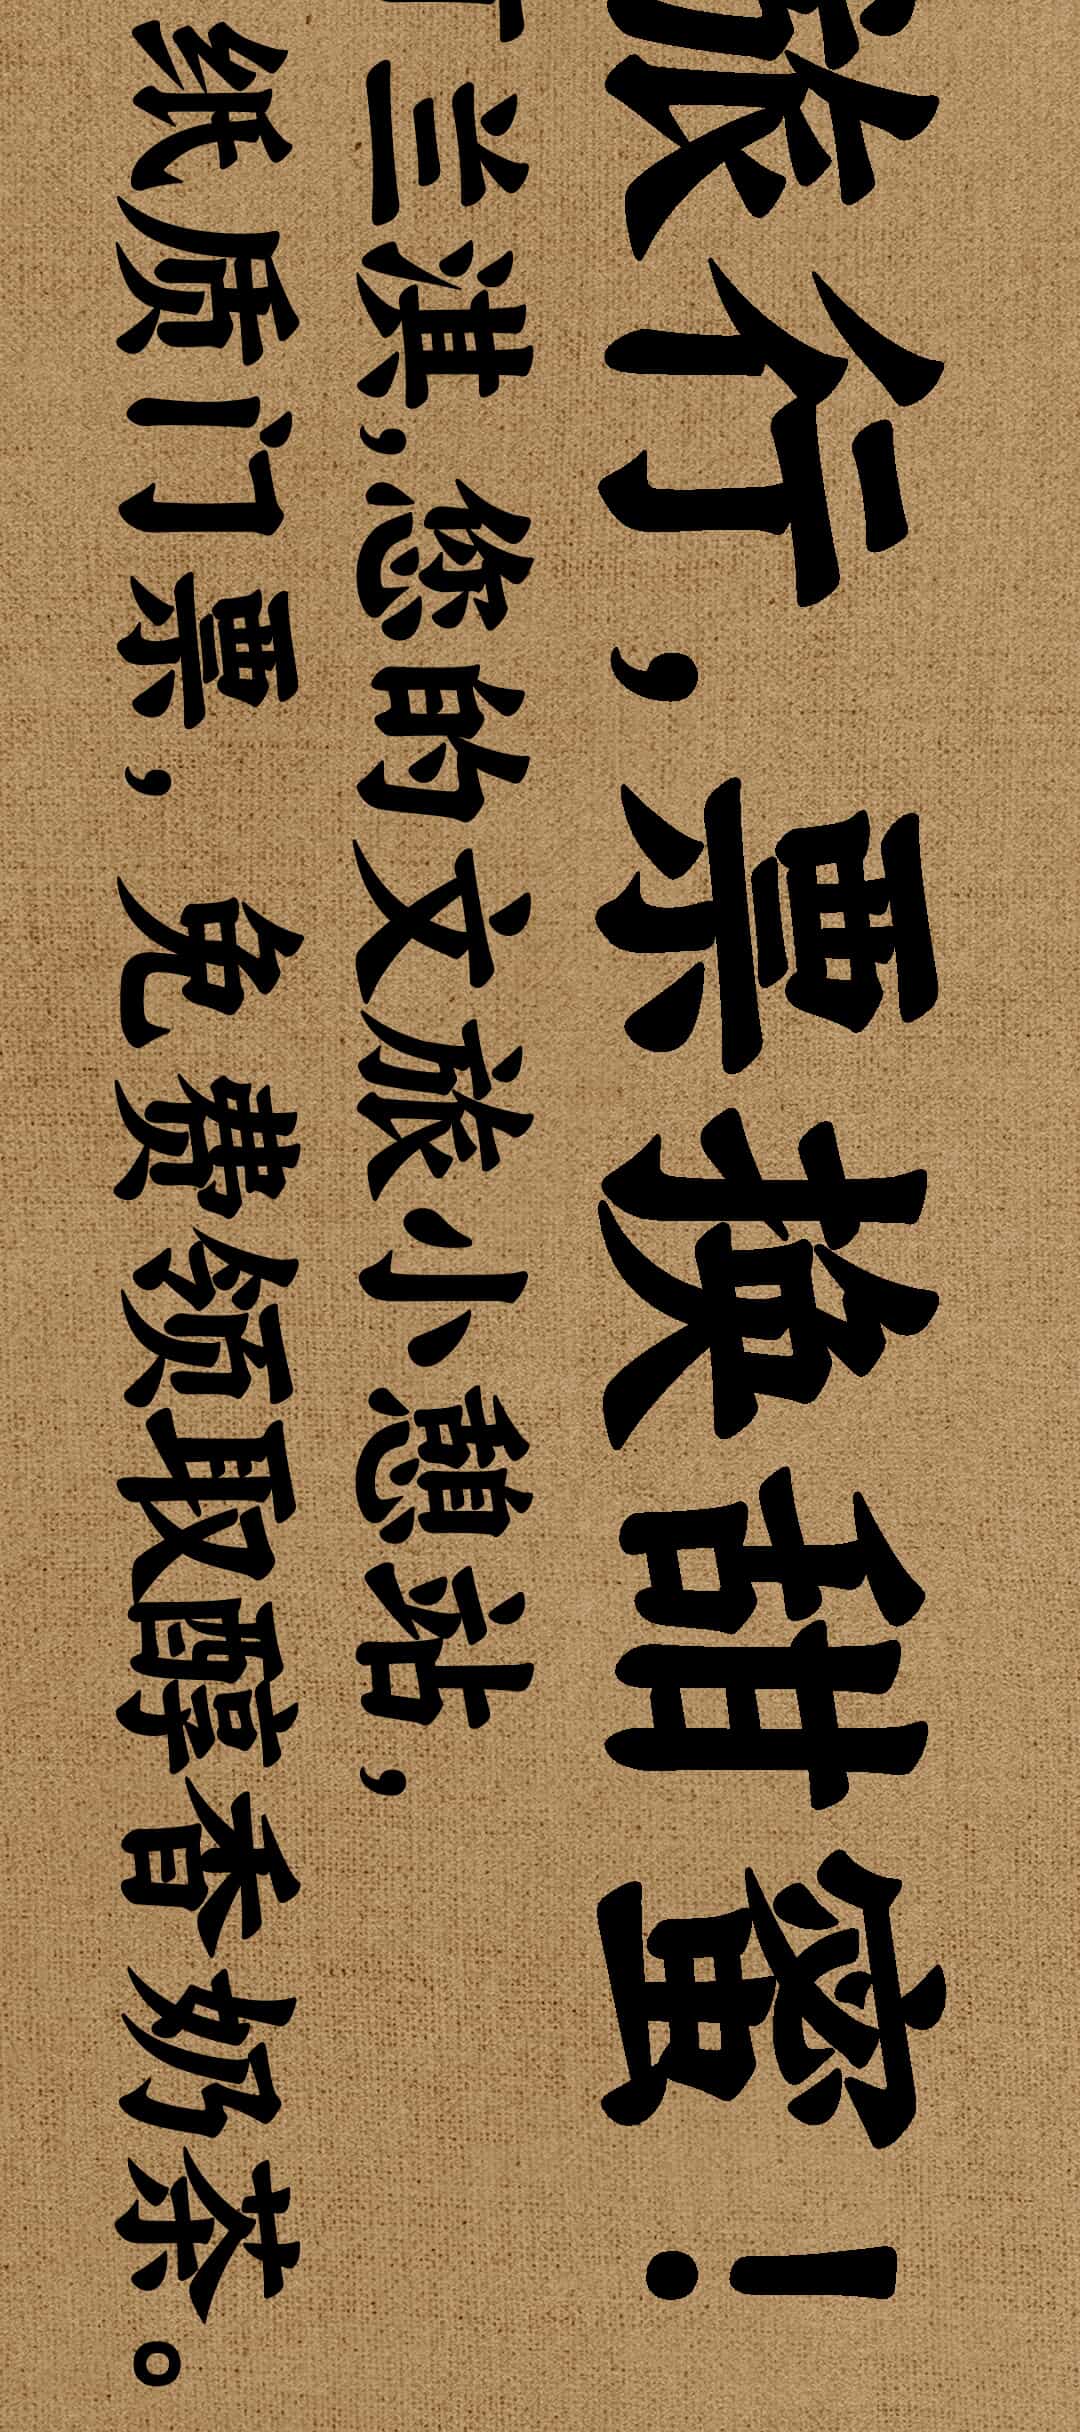 旅行，票换甜蜜！
兰淇，您的文旅小憩站，
纸质门票，免费领取醇香奶茶。